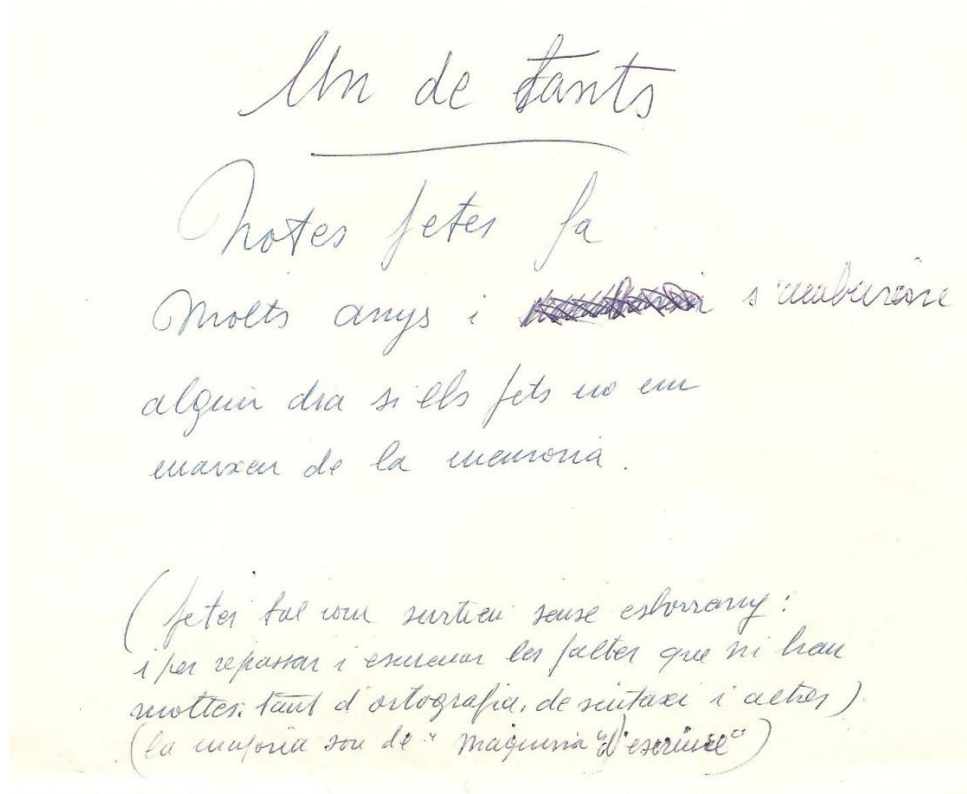 Un de tants
Notes fetes fa
Molts anys i s'acabaran
algun dia si els fets no em
marxen de la memoria.
(fetes tal com surtien sense esborrany:
i per repassar i esmenar les faltes que ni han
moltes: tant d'ortografia, de sintaxi i altres)
(la majoria son de "maquina d'escriure")